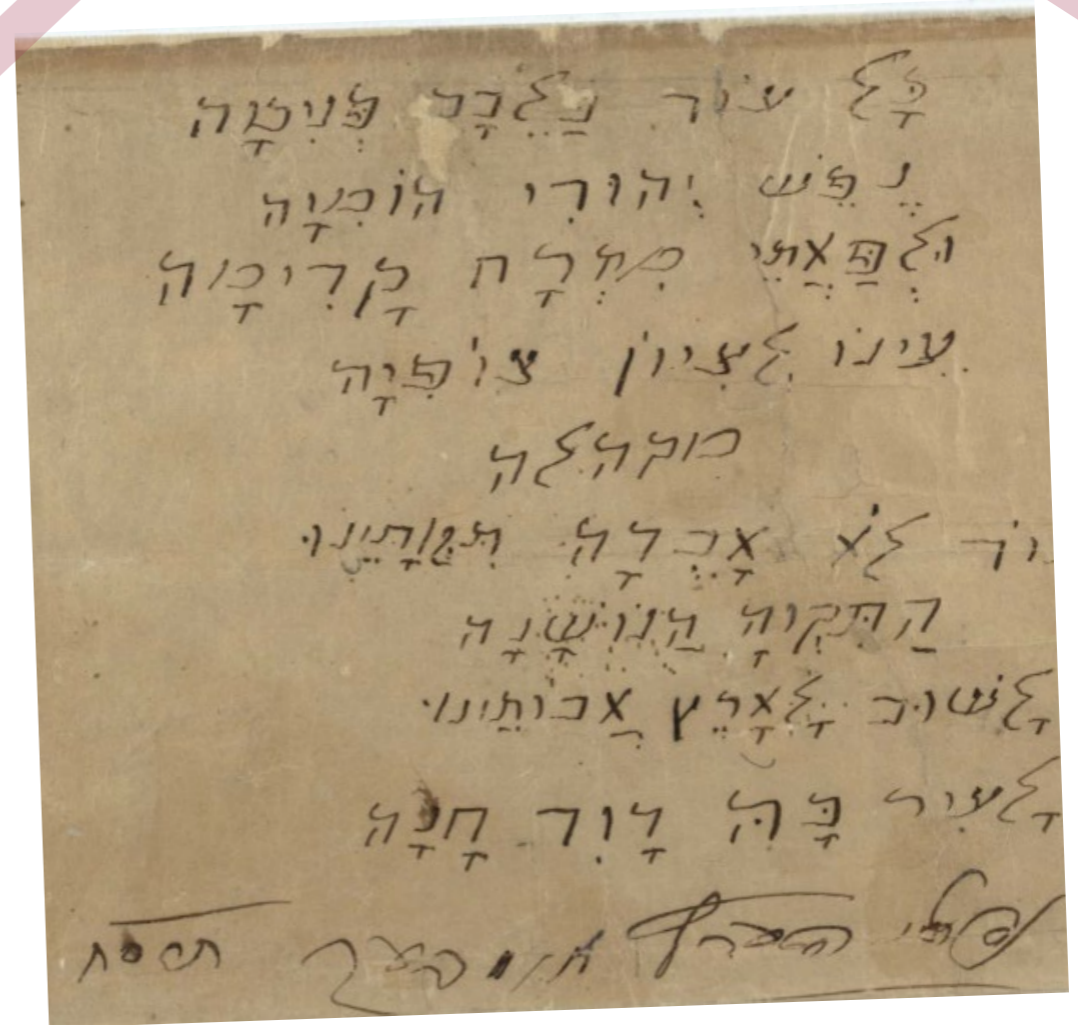 כָּל עוֹד בַּלֵּבָב פְּנִימָה
נֶפֶשׁ יְהוּדִי הוֹמִיָה
וּלְפַאֲתֵי מִזְרָח קָדִימָה
עֵינוֹ לְצִיוֹן צוֹפִיָה
מקהלה
עוֹד לֹא אָבְדָה תִּקְוָתֵינוּ
הַתִּקְוָה הַנּוֹשָׁנָה
לָשׁוּב לָאָרֶץ אֲבוֹתֵינוּ
לָעִיר בָּהּ דָוִד חָנָה
נפתלי הערץ אימבער תרסח